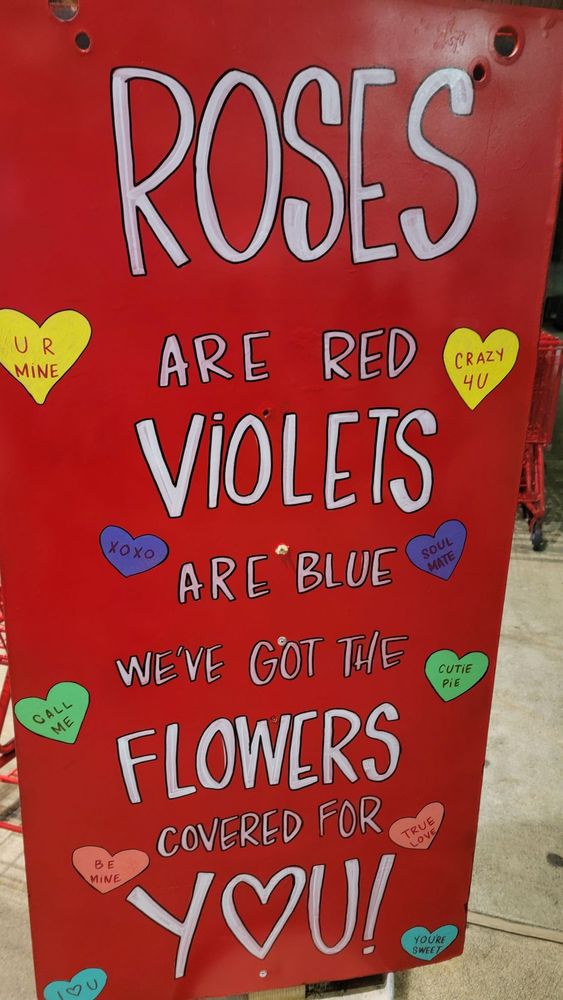 ROSES
U R
MINE
ARE RED
CRAZY
4U
VIOLETS
XOXO
SOUL
MATE
ARE BLUE
WE'VE GOT THE
CUTIE
PIE
CALL
ME
FLOWERS
COVERED FOR
TRUE
LOVE
BE
MINE
Y♡U!
YOU'RE
SWEET
I ♡ U